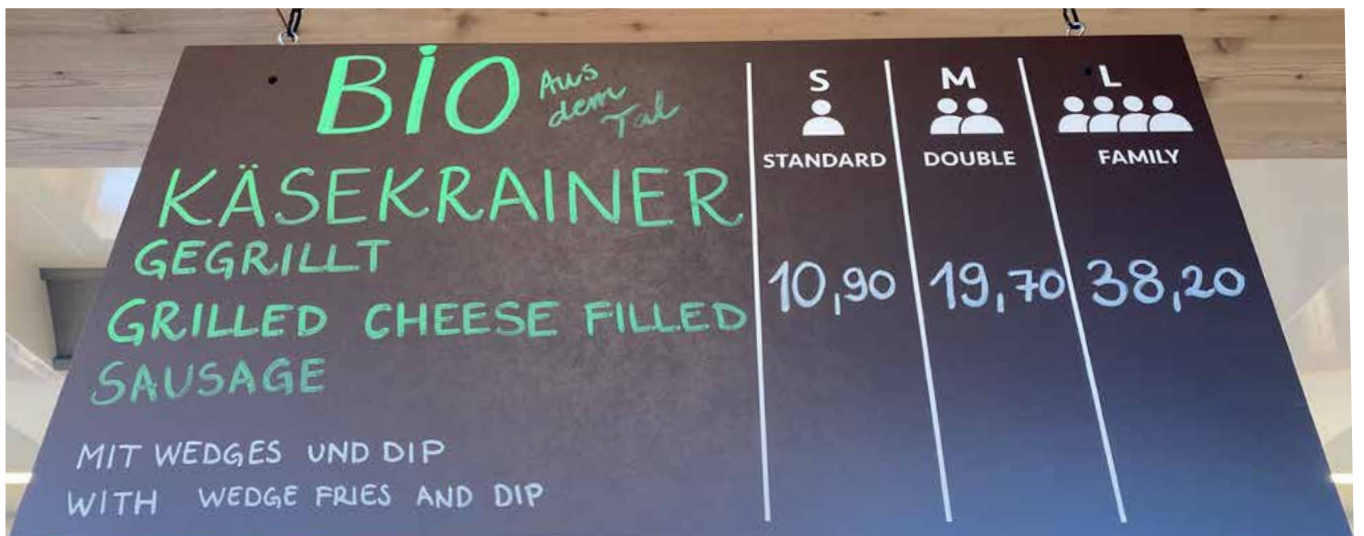 BIO Aus
dem
Tal
KÄSEKRAINER
GEGRILLT
GRILLED CHEESE FILLED
SAUSAGE
MIT WEDGES UND DIP
WITH WEDGE FRIES AND DIP
S M L
STANDARD DOUBLE FAMILY
10,90 19,70 38,20